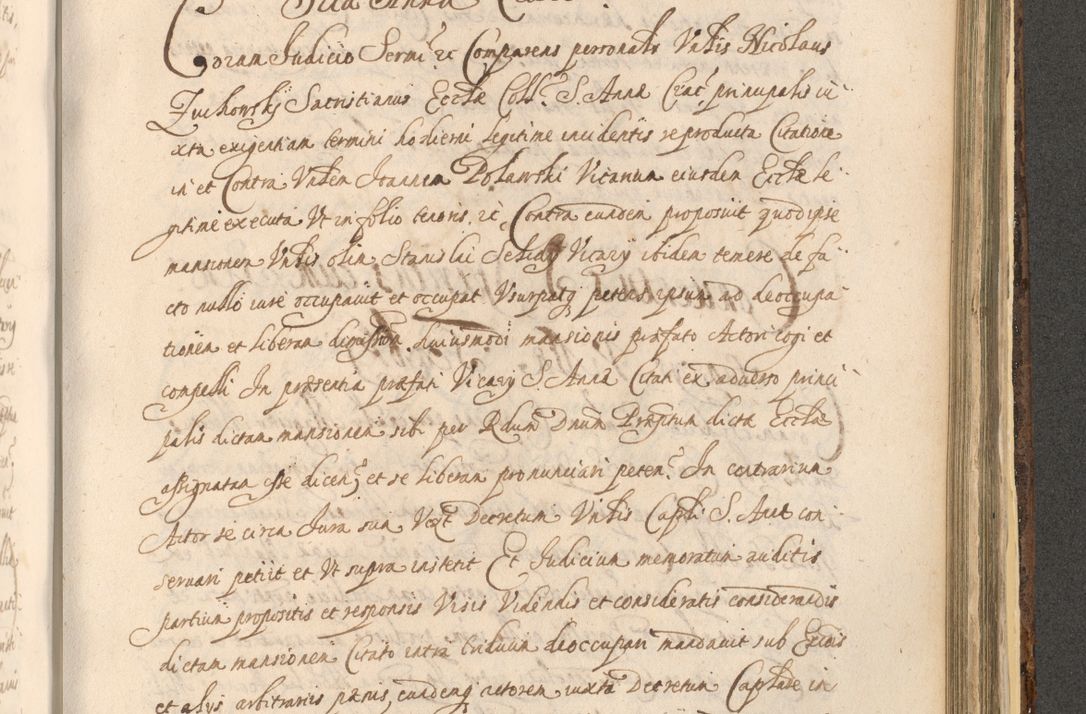 Coram Judicio Sermi etc Comparens personalr Vnblis Nicolaus
Zuchowskj Sacristianus Ecclæ Coll: S. Annæ Crac: principalis iu
xta exigentiam termini hodierni legitime incidentis reproducta Citatione
in et Contra Vnblem Joannem Polawski Vicarium eiusdem Ecclæ le
gitime executa Vt in folio tenoris etc, Contra eundem proposuit quod ipse
mansionem Vnblis olim Stanislai Vicarij ibidem temere de fa
cto nullo iure occupauit et occupat Vsurpatq petens ipsum ad deoccupa
tionem et liberam dimissionem huiusmodi mansionis præfato Actori cogi et
compelli In præsentia præfati Vicarij S. Annæ Citati ex aduerso princi
palis dictam mansionem sibi per Rdum Dnum Præptum dictæ Ecclæ
assignatam esse dicen: et se liberum pronunciari peten: In contrarium
Actor se circa Jura sua Decretum Vnblis Capli S. Annæ con
seruari petijt et Vt supra institit Et Judicium memoratum auditis
partium propositis et responsis Visis Videndis et consideratis considerandis
dictam mansionem Citato intra triduum deoccupari mandauit sub
et alijs arbitrarijs pænis, eundemq actorem iuxta Decretum Caplare in